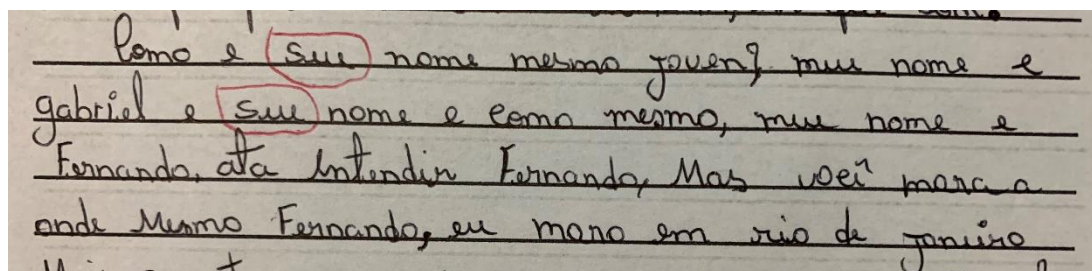 Como e sue nome mesmo jouen? mue nome e
gabriel e sue nome e como mesmo, mue nome e
Fernando, ata intendir Fernando, Mas voci mora a
onde Mesmo Fernando, eu moro em rio de janeiro